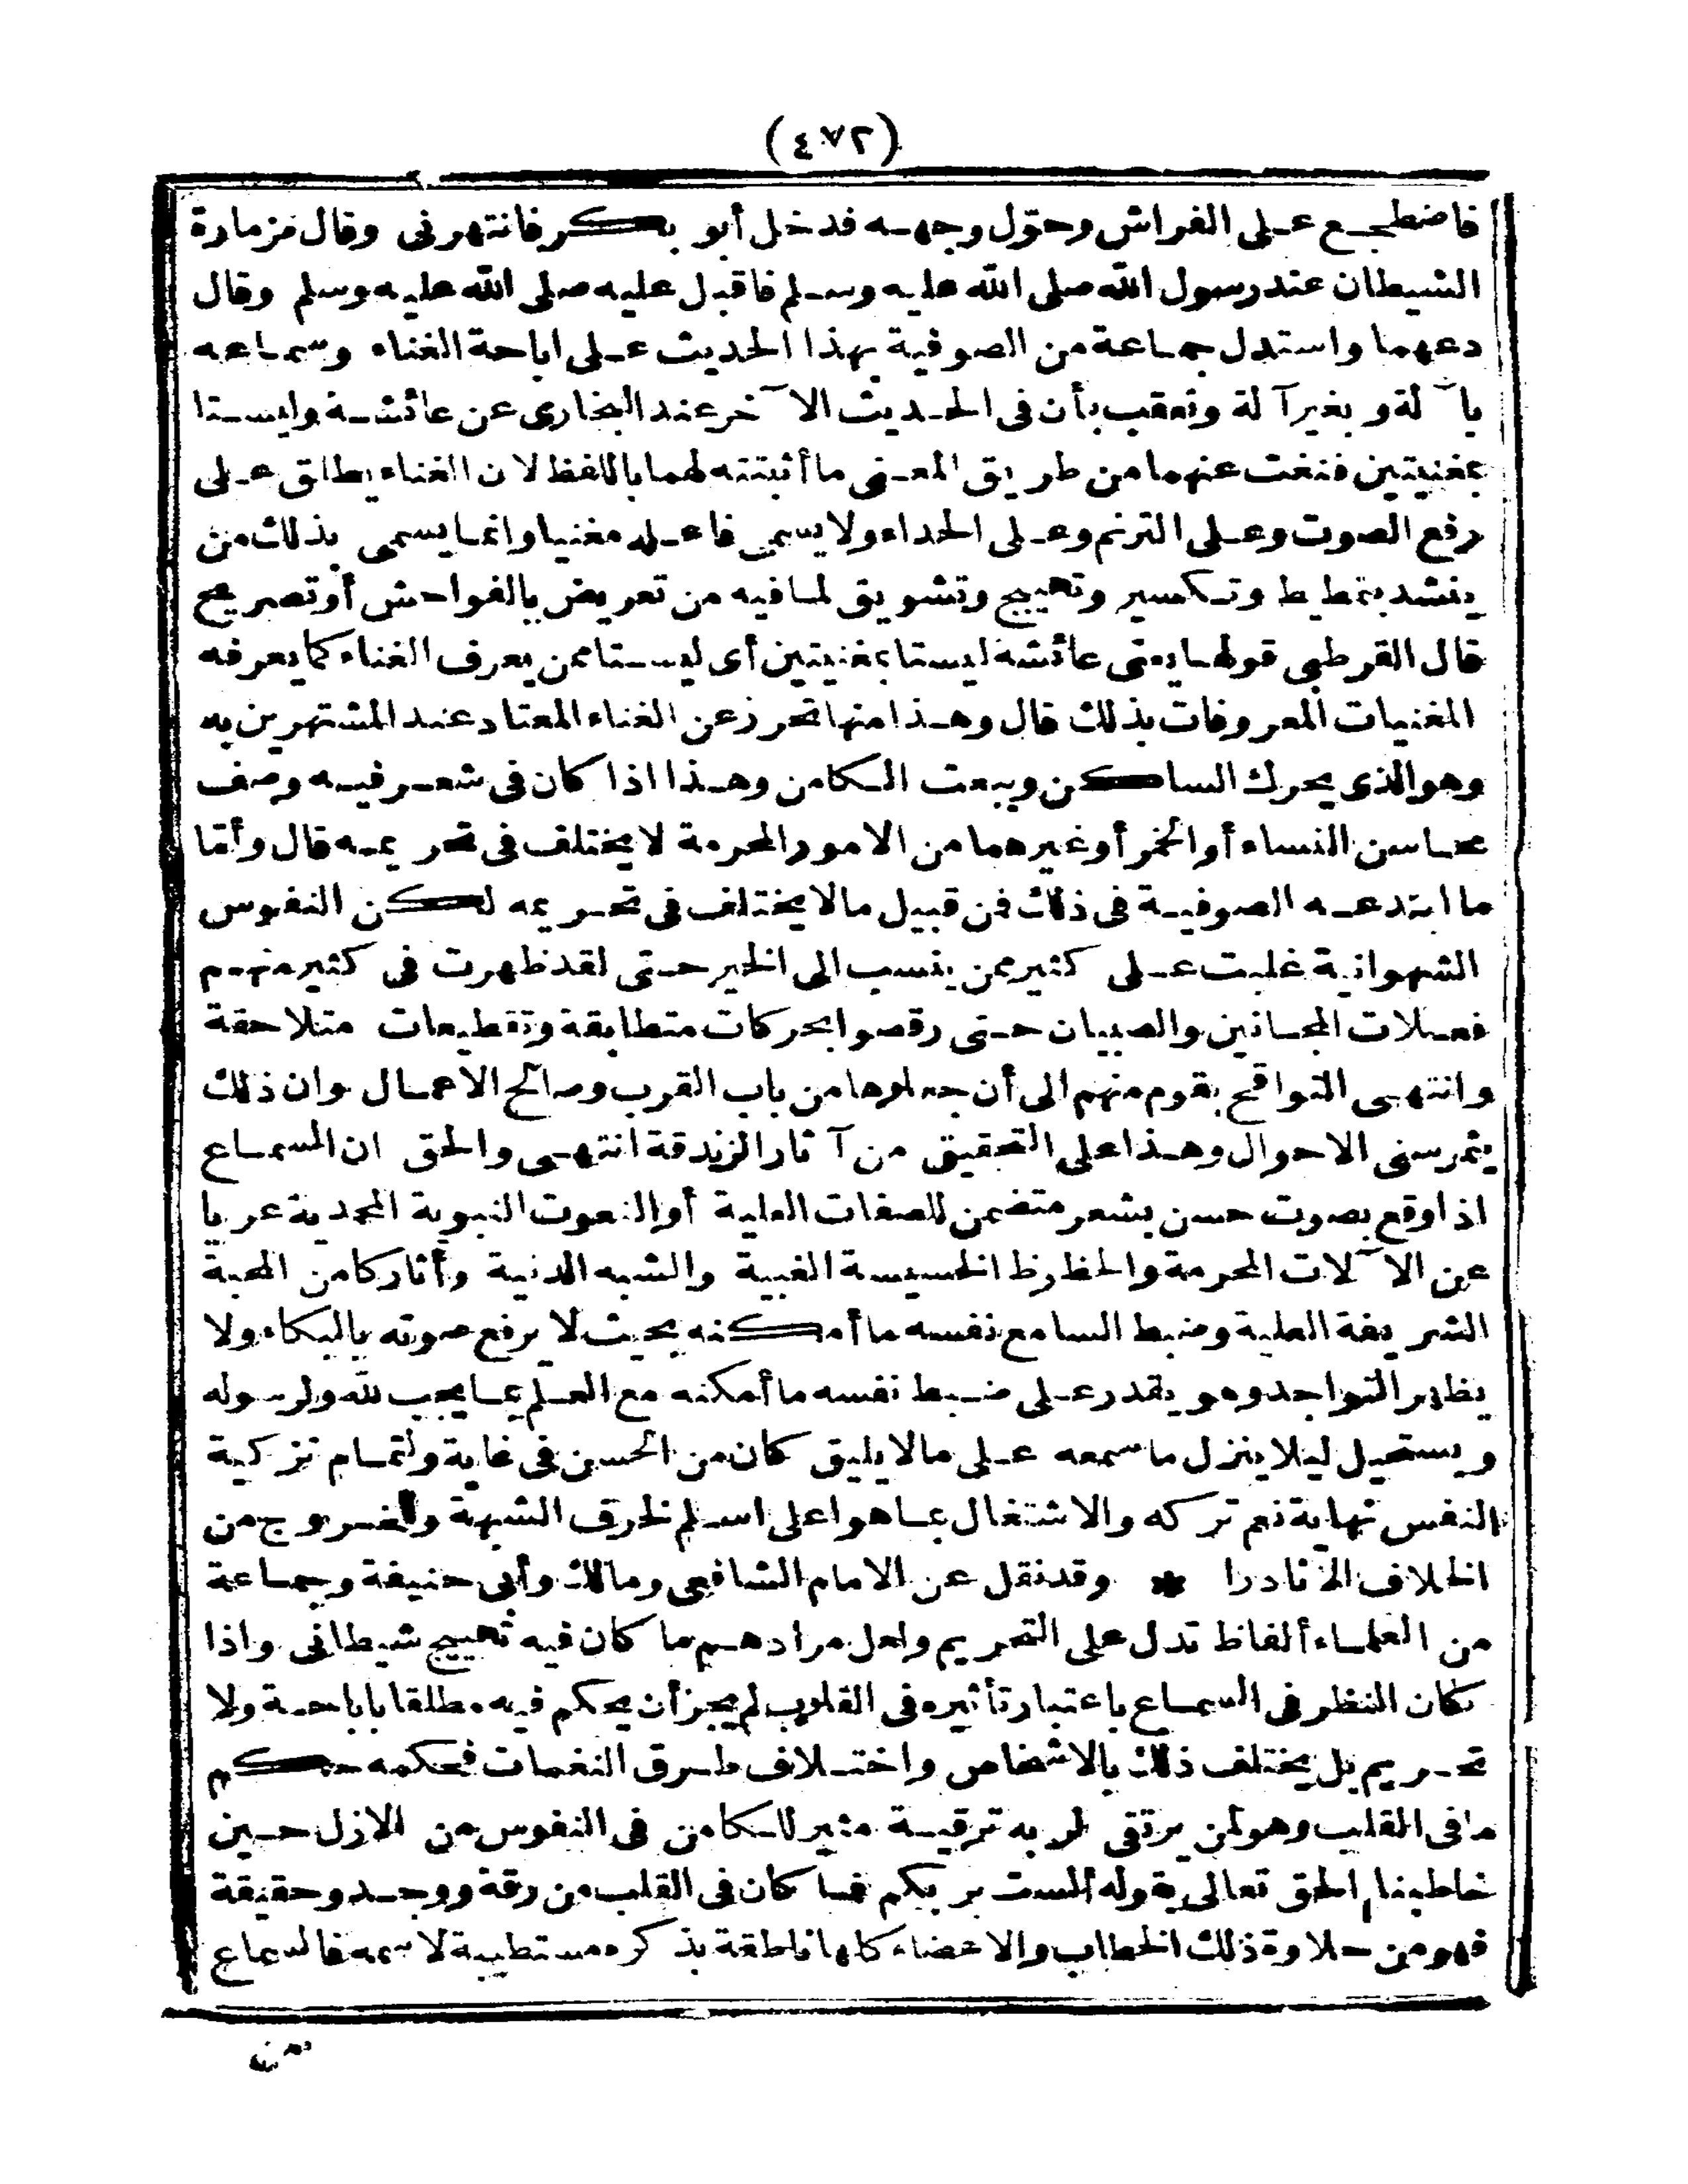 (٤٧٢)
فاضطجع على الفراش وحوّل وجهه فدخل أبو بكر فانتهرنى وقال مزمارة
الشيطان عند رسول الله صلى الله عليه وسلم فاقبل عليه صلى الله عليه وسلم وقال
دعهما واستدل جماعة من الصوفية بهذا الحديث على اباحة الغناء وسماعه
بآلة وبغير آلة وتعقب بأن فى الحديث الآخر عند البخارى عن عائشة وليستا
بمغنيتين فنفت عنهما من طريق المعنى ما أثبتته لهما باللفظ لان الغناء يطلق على
رفع الصوت وعلى الترنم وعلى الحداء ولا يسمى فاعله مغنيا وانما يسمى بذلك من
ينشد بتمطيط وتكسير وتهييج وتشويق لما فيه من تعريض بالفواحش أو تصريح
قال القرطبى قولها يعنى عائشة ليستا بمغنيتين أى ليستا ممن يعرف الغناء كما يعرفه
المغنيات المعروفات بذلك قال وهذا منها تحرز عن الغناء المعتاد عند المشتهرين به
وهو الذى يحرك الساكن ويبعث الكامن وهذا اذا كان فى شعر فيه وصف
محاسن النساء أو الخمر أو غيرهما من الامور المحرمة لا يختلف فى تحريمه قال وأمّا
ما ابتدعه الصوفية فى ذلك فمن قبيل ما لا يختلف فى تحريمه لكن النفوس
الشهوانية غلبت على كثير ممن ينسب الى الخير حتى لقد ظهرت فى كثير منهم
فعلات المجانين والصبيان حتى رقصوا بحركات متطابقة وتقطيعات متلاحقة
وانتهى التواقح بقوم منهم الى أن جعلوها من باب القرب وصالح الاعمال وان ذلك
يثمر سنى الاحوال وهذا على التحقيق من آثار الزندقة انتهى والحق ان السماع
اذا وقع بصوت حسن بشعر متضمن للصفات العلية أو النعوت النبوية المحمدية عريا
عن الآلات المحرمة والحظوظ الخسيسة الغبية والشبه الدنية وأثار كامن المحبة
الشريفة العلية وضبط السامع نفسه ما أمكنه بحيث لا يرفع صوته بالبكاء ولا
يظهر التواجد وهو يقدر على ضبط نفسه ما أمكنه مع العلم بما يجب لله ولرسوله
ويستحيل ليلا ينزل ما سمعه على ما لا يليق كان من الحسن فى غاية ولتمام تزكية
النفس نهاية نعم تركه والاشتغال بما هو اعلى اسلم لخوف الشبهة والخروج من
الخلاف الا نادرا * وقد نقل عن الامام الشافعى ومالك وأبى حنيفة وجماعة
من العلماء ألفاظ تدل على التحريم ولعل مرادهم ما كان فيه تهييج شيطانى واذا
كان النظر فى السماع باعتبار تأثيره فى القلوب لم يجز أن يحكم فيه مطلقا باباحة ولا
تحريم بل يختلف ذلك بالاشخاص واختلاف طرق النغمات فحكمه حكم
ما فى القلب وهو لمن يرتقى لربه ترقية مثير للكامن فى النفوس من الازل حين
خاطبنا الحق تعالى بقوله ألست بربكم فما كان فى القلب من رقة ووجد وحقيقة
فهو من حلاوة ذلك الخطاب والاعضاء كلها ناطقة بذكره مستطيبة لاسمه فالسماع
من